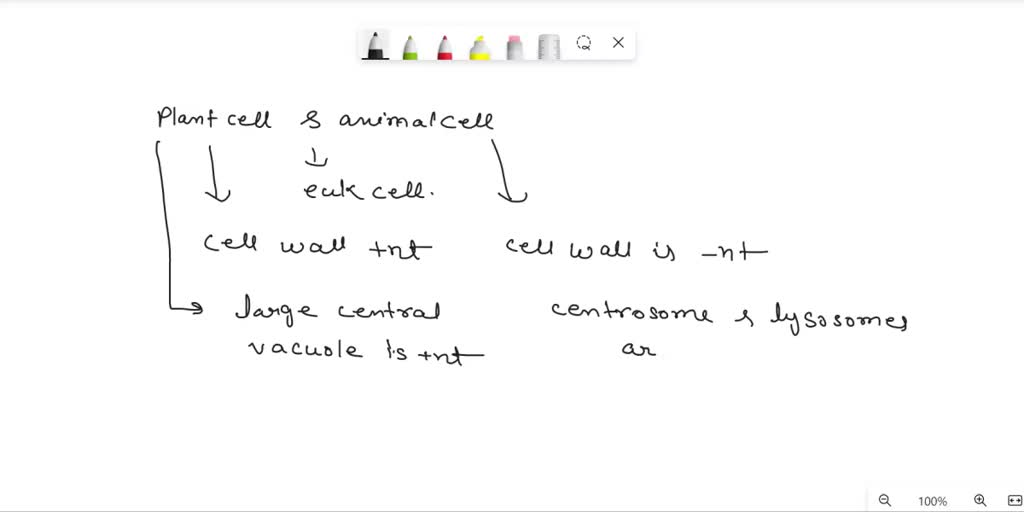 Plant cell & animal cell
euk cell.
cell wall +nt
cell wall is -nt
large central
vacuole is +nt
centrosome & lysosomes
ar
100%